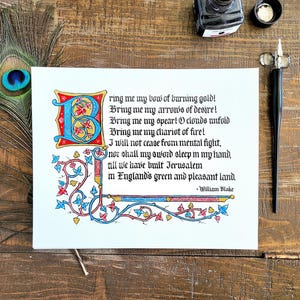 Bring me my bow of burning gold!
Bring me my arrows of desire!
Bring me my spear! O clouds unfold
Bring me my chariot of fire!
I will not cease from mental fight,
nor shall my sword sleep in my hand,
till we have built Jerusalem
in England's green and pleasant land.
- William Blake